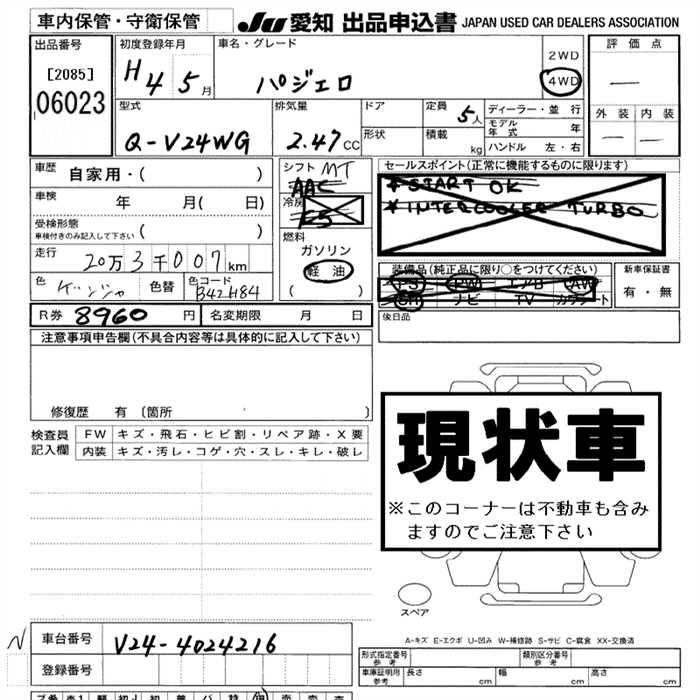 車内保管・守衛保管 JU 愛知 出品申込書 JAPAN USED CAR DEALERS ASSOCIATION
出品番号 初度登録年月 車名・グレード 2WD 評価点
[2085] H4 5月 パジェロ 4WD —
06023
型式 排気量 ドア 定員 5人 ディーラー・並行 外装 内装
モデル年式 年 — —
Q-V24WG 2.47CC 形状 積載 kg ハンドル 左・右
車歴 自家用・( ) シフト MT セールスポイント(正常に機能するものに限ります)
AAC * START OK
車検 年 月( 日) 冷房 * INTERCOOLER TURBO
受検形態
車検付きのみ記入して下さい ( ) 燃料
走行 20万3千007km ガソリン
軽油 装備品(純正品に限り○をつけてください) 新車保証書
色 色替 色コード ( ) PS PW エアB AW 有・無
B42H84 SR ナビ TV カワシート
R券 8960円 名変期限 月 日 後日品
注意事項申告欄(不具合内容等は具体的に記入して下さい)
現状車
修復歴 有 〔箇所 〕
検査員 FW キズ・飛石・ヒビ割・リペア跡・X要
記入欄 内装 キズ・汚レ・コゲ・穴・スレ・キレ・破レ
※このコーナーは不動車も含み
ますのでご注意下さい
スペア
N 車台番号 V24-4024216 A-キズ E-エクボ U-凹み W-補修跡 S-サビ C-腐食 XX-交換済
登録番号 形式指定番号 参考 類別区分番号 参考
車庫証明用 参考 長さ cm 幅 cm 高さ cm